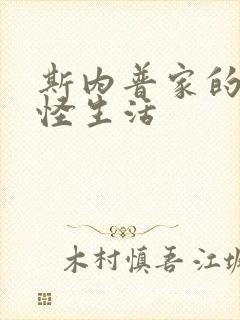 斯内普家的
怪生活
木村慎吾 江坂